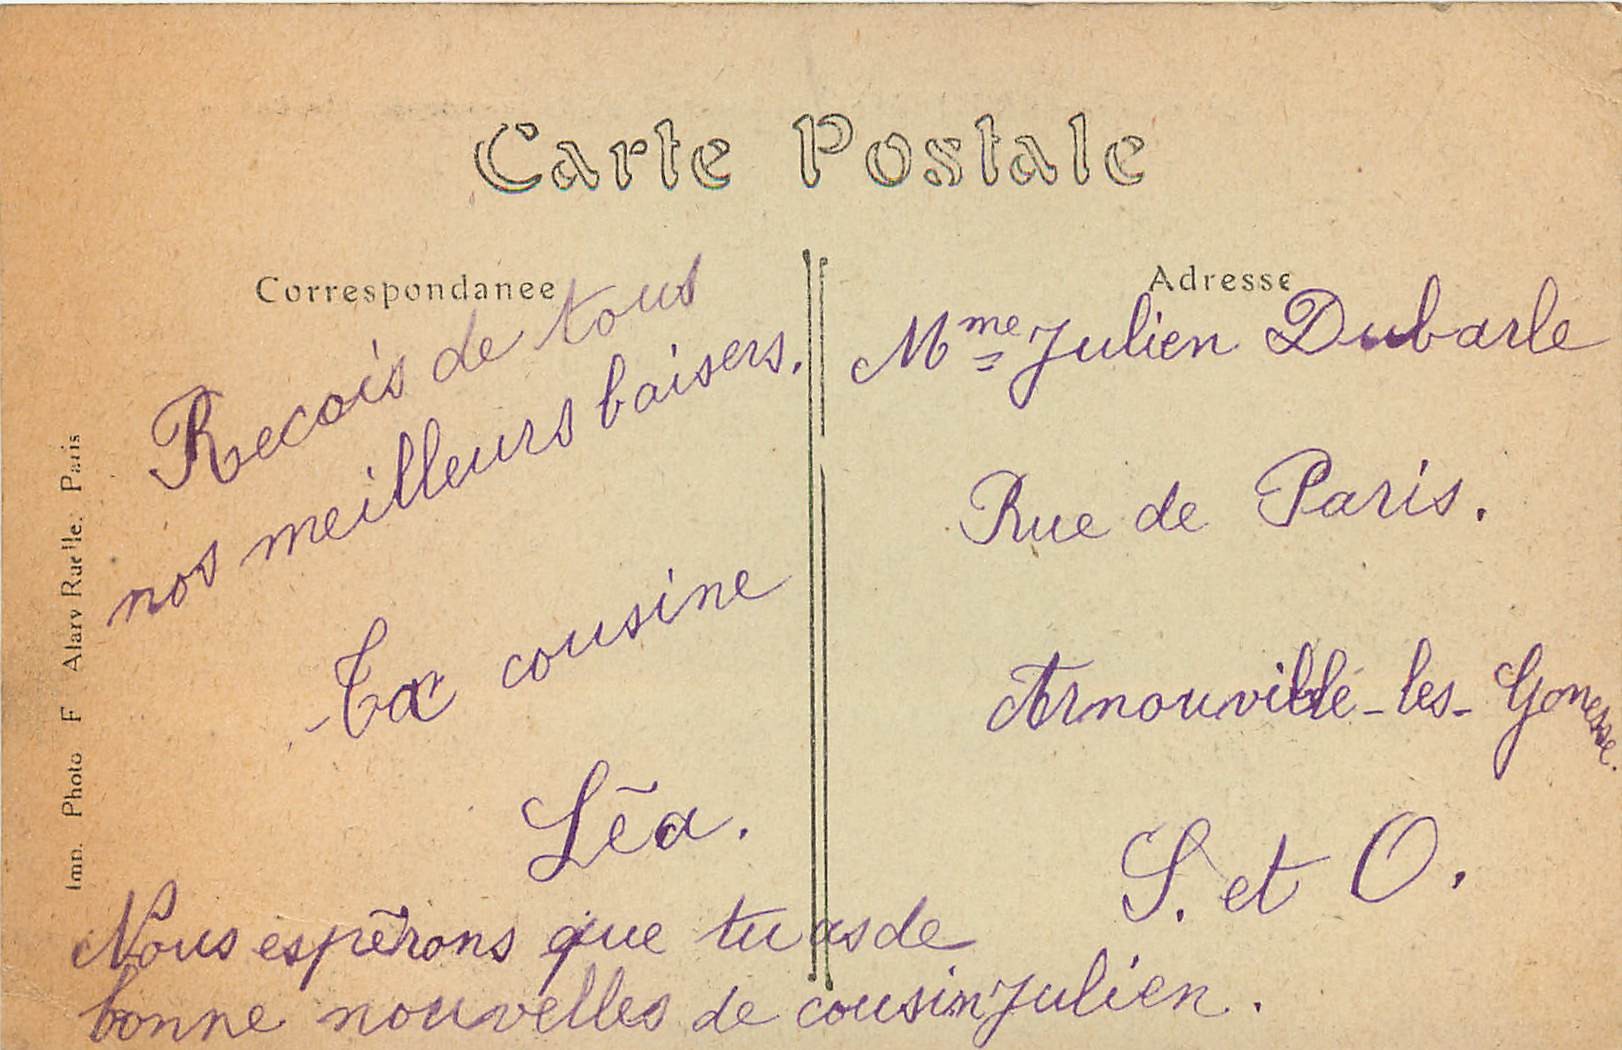 Carte Postale
Correspondance
Recois de tous
nos meilleurs baisers.
Ta cousine
Léa.
Nous espérons que tu as de
bonne nouvelles de cousin Julien.
Adresse
Mme Julien Dubarle
Rue de Paris.
Arnouville-les-Gonesse.
S. et O.
Imp. Photo F Alary Ruelle. Paris